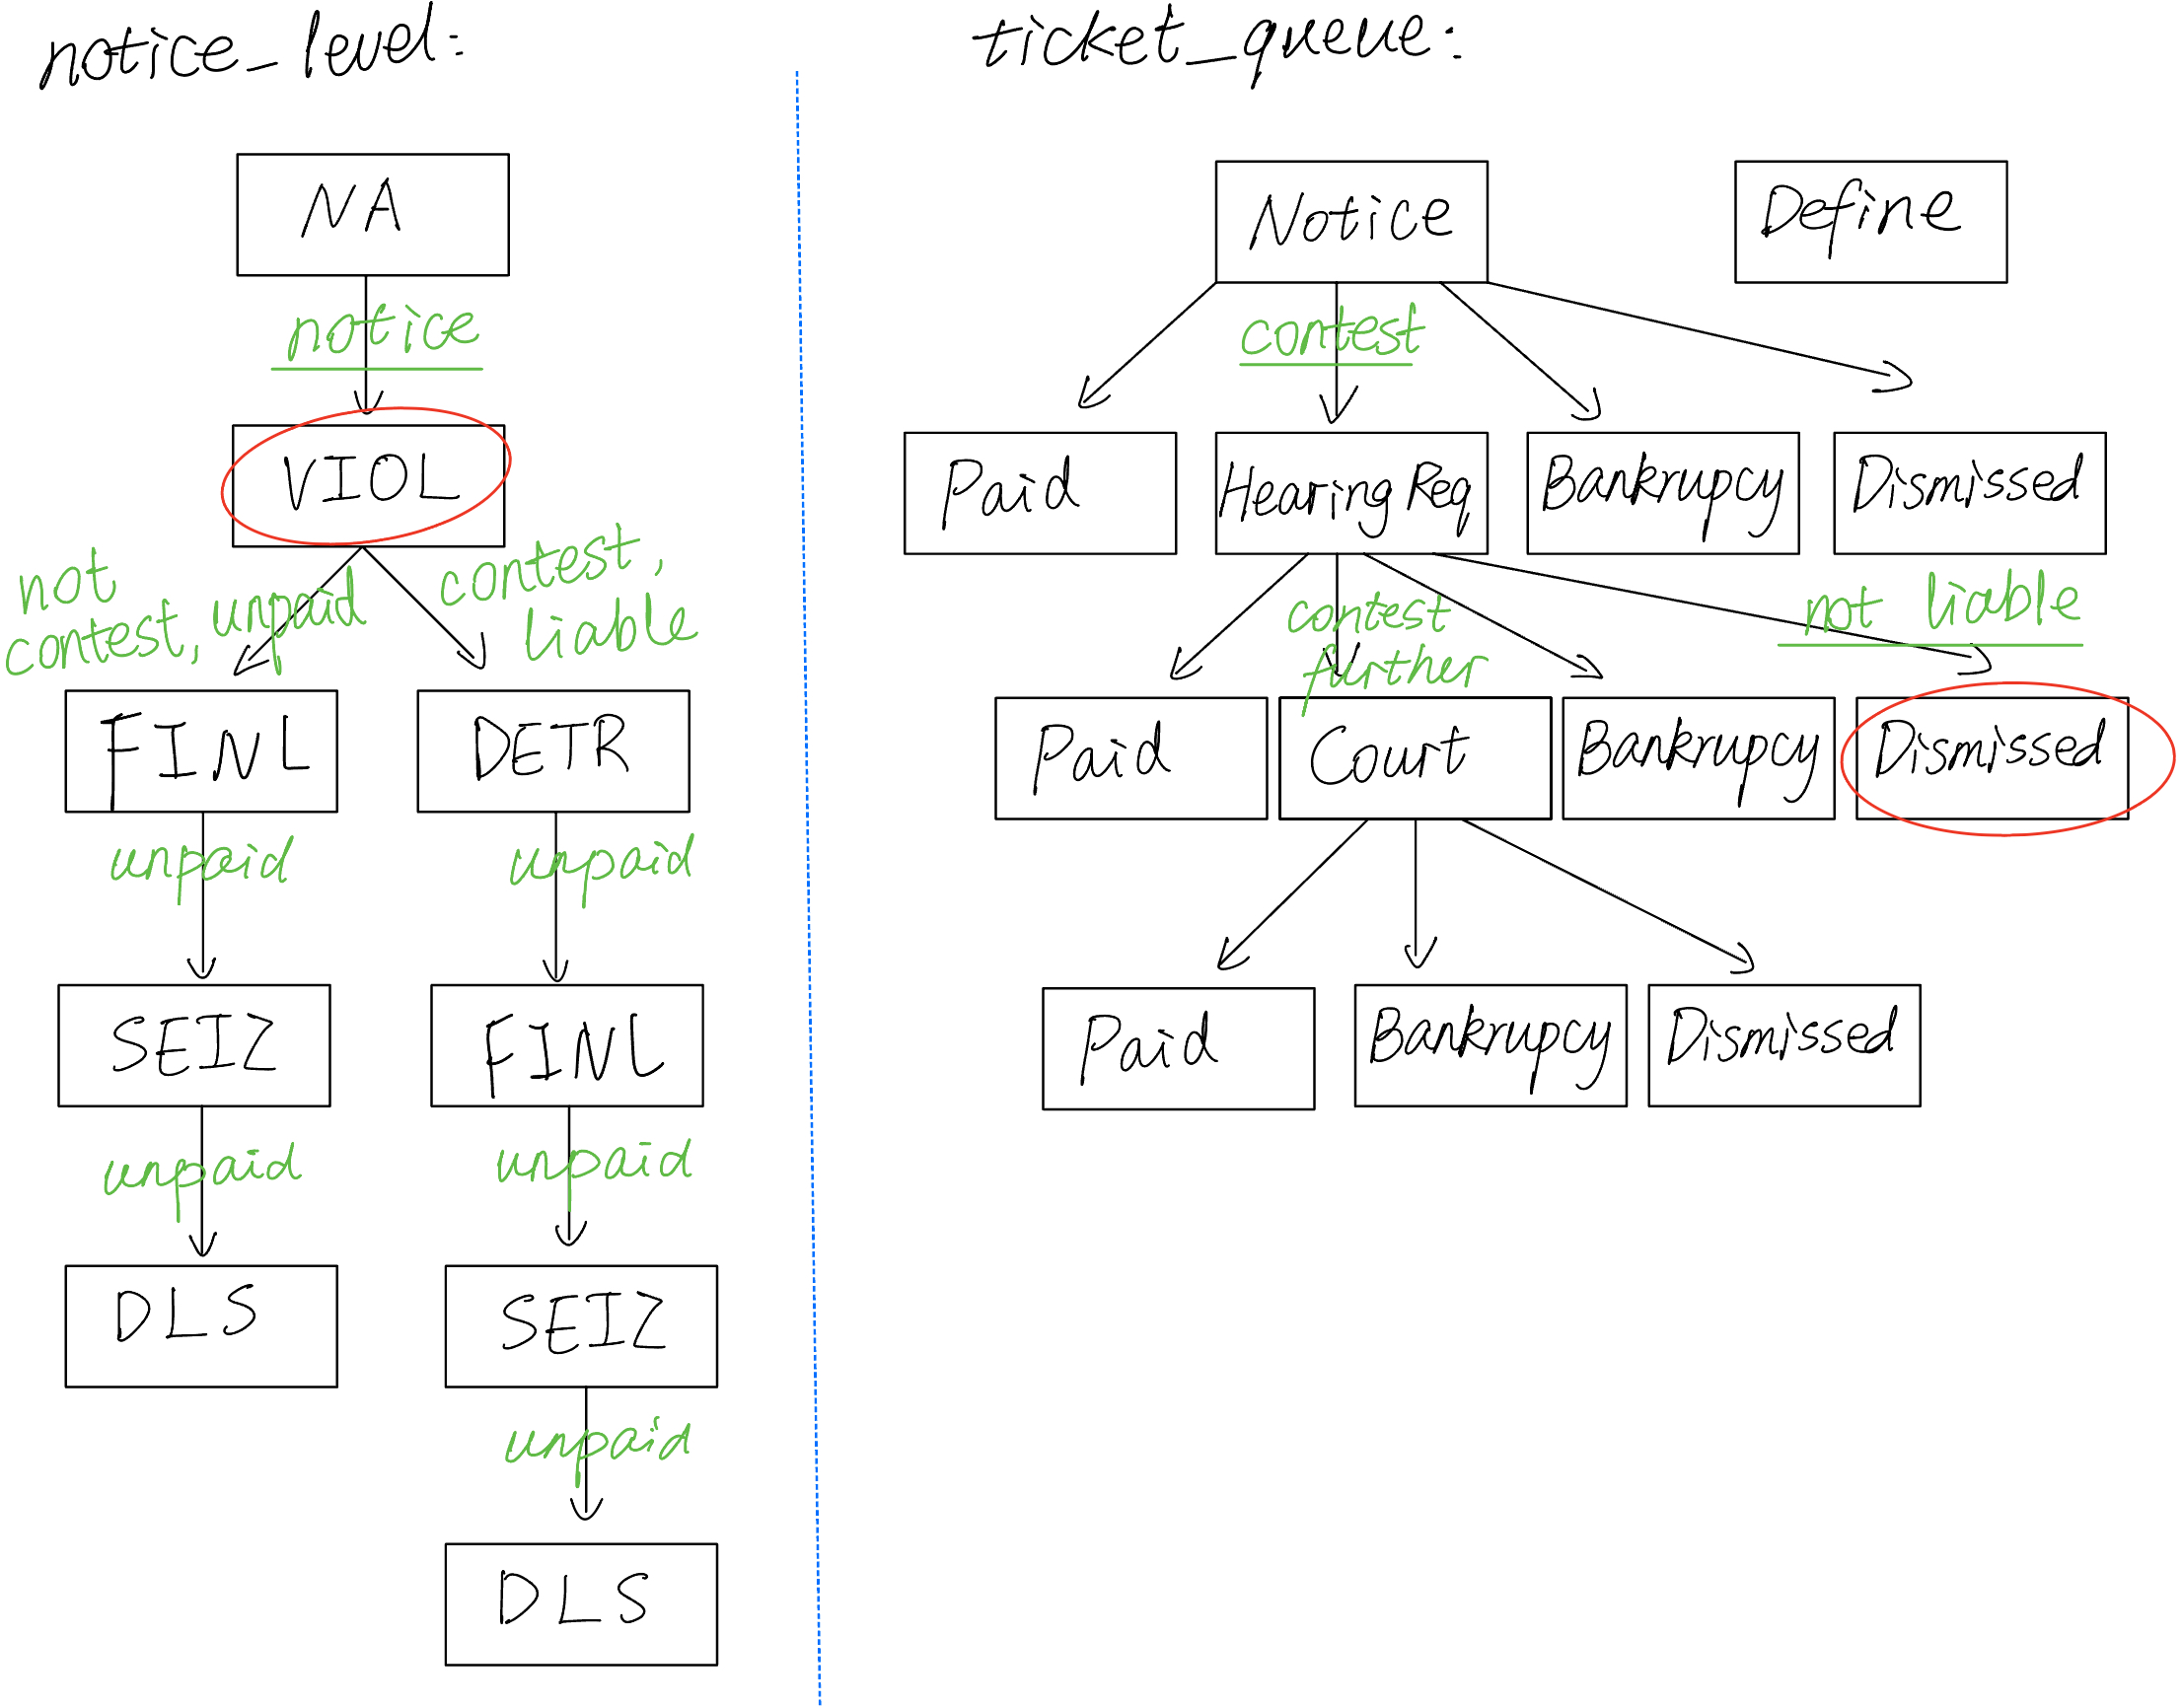 notice_level:
NA
notice
VIOL
not
contest, unpaid
contest,
liable
FINL
DETR
unpaid
unpaid
SEIZ
FINL
unpaid
unpaid
DLS
SEIZ
unpaid
DLS
ticket_queue:
Notice
Define
contest
Paid
Hearing Req
Bankrupcy
Dismissed
contest
further
not liable
Paid
Court
Bankrupcy
Dismissed
Paid
Bankrupcy
Dismissed